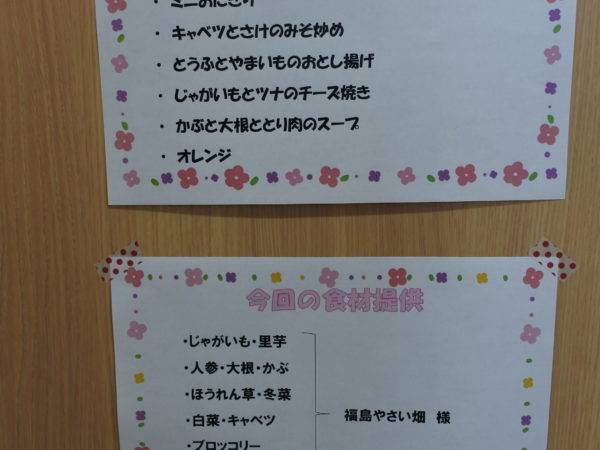 ・ミニおにぎり
・キャベツとさけのみそ炒め
・とうふとやまいものおとし揚げ
・じゃがいもとツナのチーズ焼き
・かぶと大根ととり肉のスープ
・オレンジ
今回の食材提供
・じゃがいも・里芋
・人参・大根・かぶ
・ほうれん草・冬菜
・白菜・キャベツ
福島やさい畑 様
・ブロッコリー